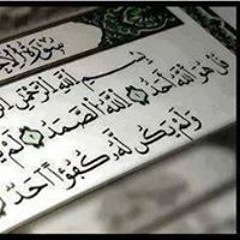 سورة الإ
بسم الله الرحمن ال
قل هو الله أحد الله الصمد لم
ولم يكن له كفوا أحد